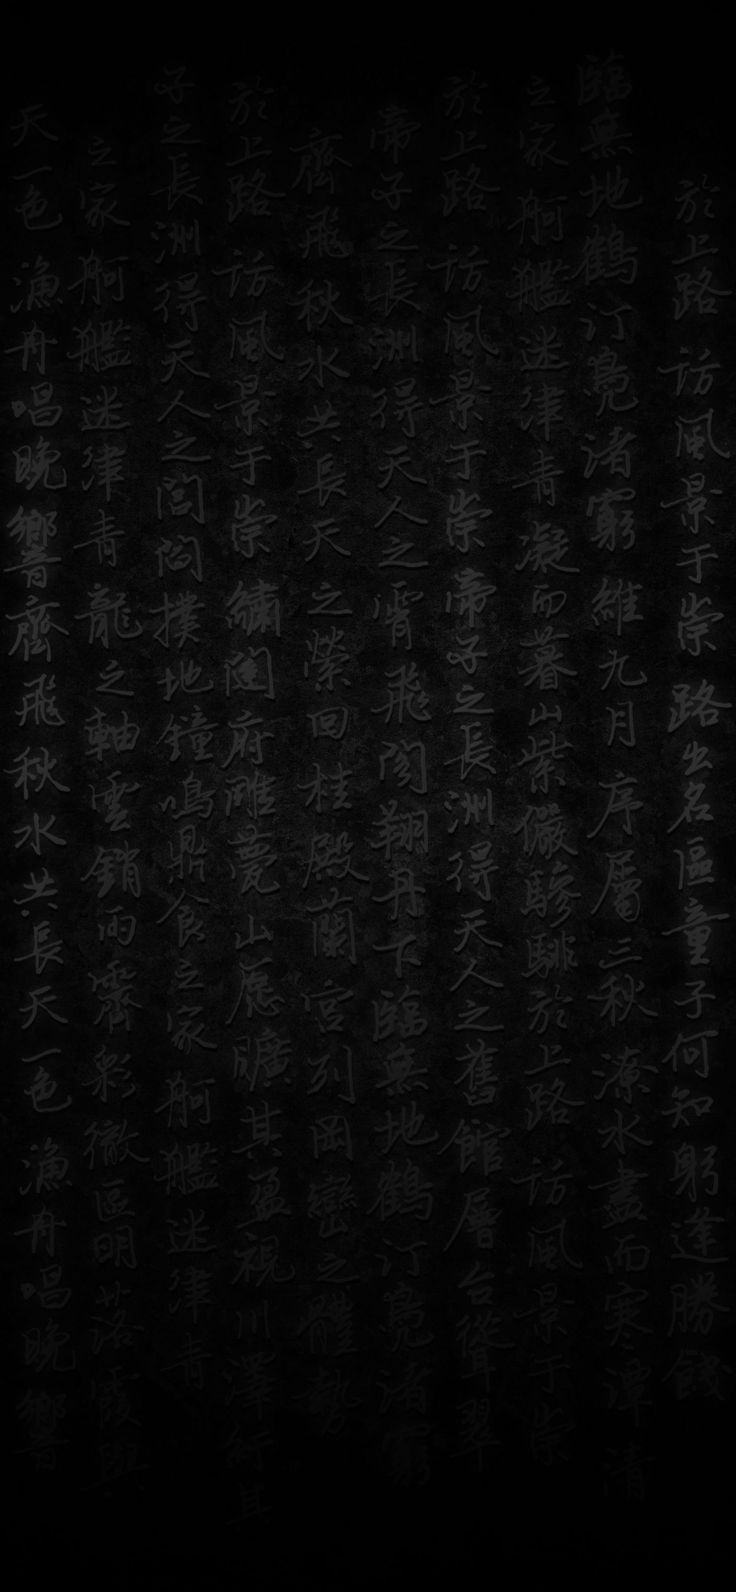 於上路訪風景于崇路出名區童子何知躬逢勝餞
臨無地鶴汀鳧渚窮維九月序屬三秋潦水盡而寒潭清
之家舸艦迷津青凝而暮山紫儼驂騑於上路訪風景于崇
於上路訪風景于崇帝子之長洲得天人之舊館層台聳翠
帝子之長洲得天人之霄飛閣翔丹下臨無地鶴汀鳧渚窮
齊飛秋水共長天之縈回桂殿蘭宮列岡巒之體勢
於上路訪風景于崇繡闥府雕甍山原曠其盈視川澤紆其
子之長洲得天人之閭閻撲地鐘鳴鼎食之家舸艦迷津青
之家舸艦迷津青龍之軸雲銷雨霽彩徹區明落霞與
天一色漁舟唱晚響齊飛秋水共長天一色漁舟唱晚響